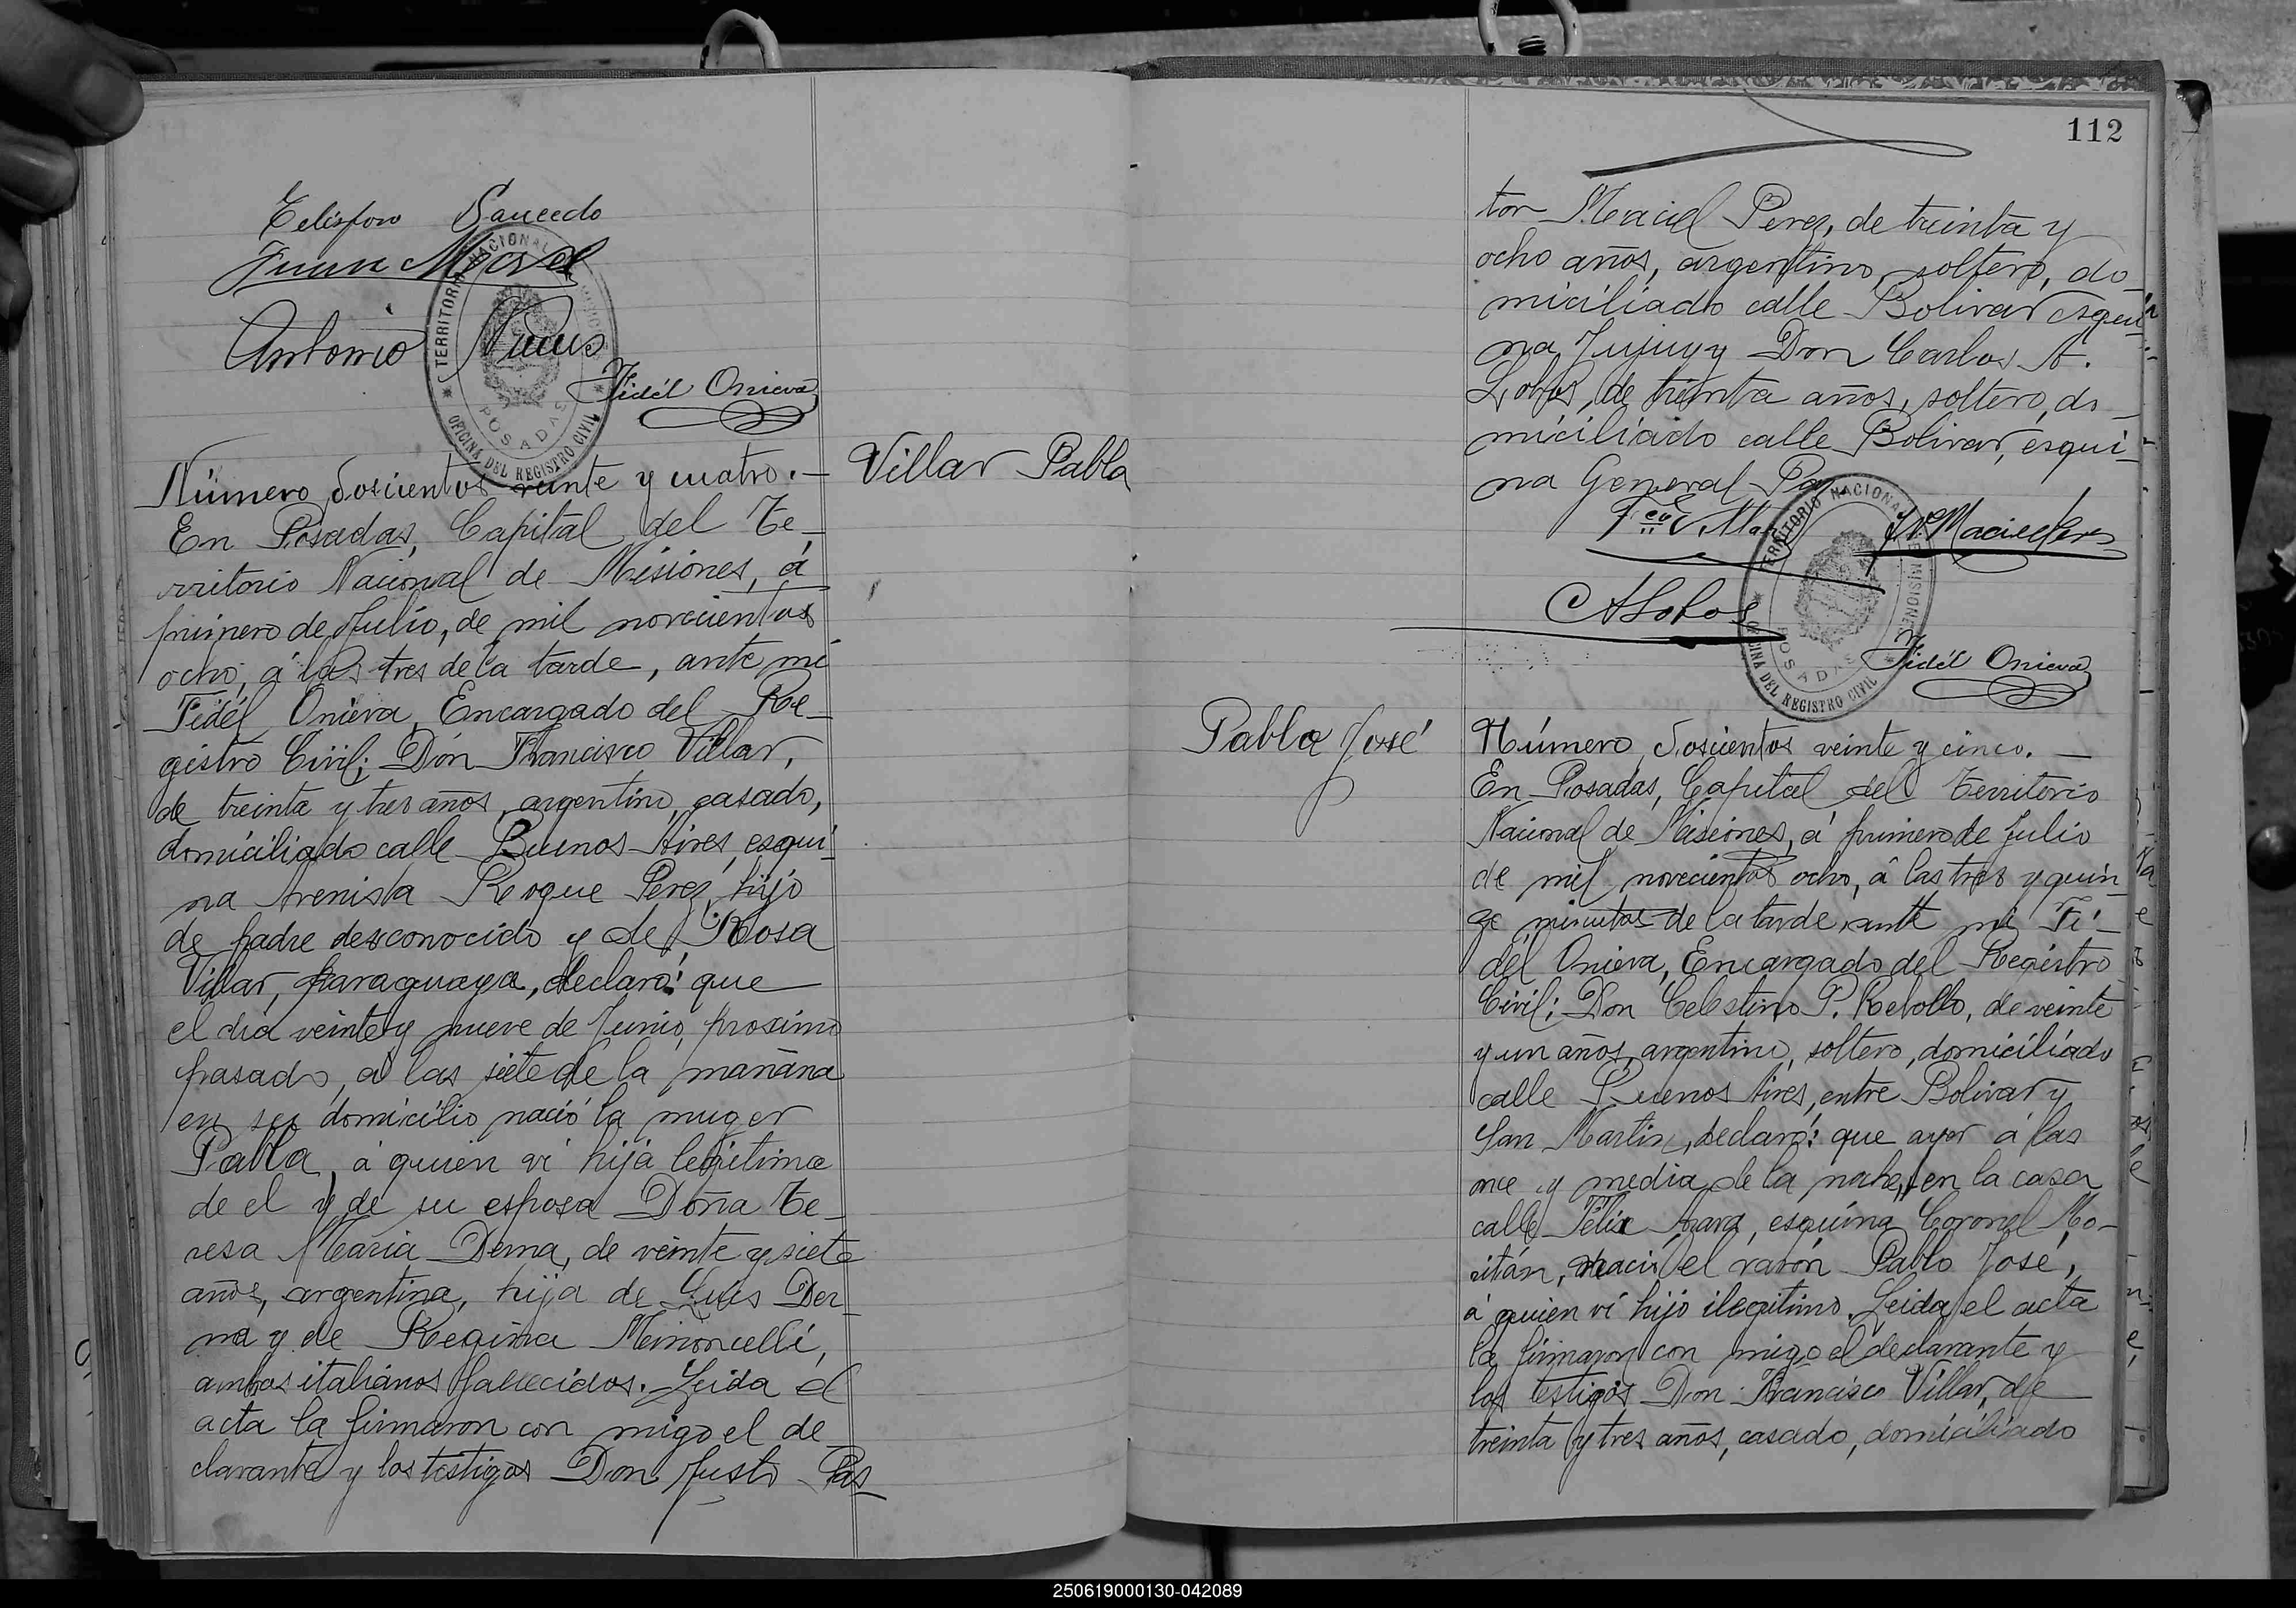 Telésforo Saucedo
Juan Morel
Antonio
Fidél Onieva
TERRITORIO NACIONAL DE MISIONES
POSADAS
OFICINA DEL REGISTRO CIVIL
Villar Pabla
Número doscientos veinte y cuatro.—
En Posadas, Capital del Te-
rritorio Nacional de Misiones, á
primero de Julio, de mil novecientos
ocho, á las tres de la tarde, ante mi
Fidél Onieva, Encargado del Re-
gistro Civil; Don Francisco Villar,
de treinta y tres años, argentino, casado,
domiciliado calle Buenos Aires, esqui-
na Avenida Roque Perez, hijo
de padre desconocido y de Rosa
Villar, paraguaya, declaró: que
el dia veinte y nueve de Junio, prosimo
pasado, á las siete de la mañana
en su domicilio nació la muger
Pabla, á quien ví hija legítima
de el y de su esposa Doña Te-
resa Maria Dema, de veinte y siete
años, argentina, hija de Luis De-
ma y de Regina
ambos italianos fallecidos. Leida el
acta la firmaron con migo el de-
clarante y los testigos Don Justo Pas
112
tor Maciel Perez, de treinta y
ocho años, argentino, soltero, do-
miciliado calle Bolivar esqui-
na Jujuy y Don Carlos A.
Lobos, de treinta años, soltero, do-
miciliado calle Bolivar, esqui-
na General Paz.
Fco Villar
J. P. Maciel Perez
CALobos
TERRITORIO NACIONAL DE MISIONES
POSADAS
OFICINA DEL REGISTRO CIVIL
Fidél Onieva
Pablo José
Número doscientos veinte y cinco.—
En Posadas, Capital del Territorio
Nacional de Misiones, á primero de Julio
de mil novecientos ocho, á las tres y quin-
ce minutos de la tarde, ante mi Fi-
dél Onieva, Encargado del Registro
Civil; Don Celestino P. Rebollo, de veinte
y un años, argentino, soltero, domiciliado
calle Buenos Aires, entre Bolivar y
San Martin, declaró: que ayer á las
once y media de la noche, en la casa
calle Félix Azara, esquina Coronel Mo-
ritán, nació el varón Pablo José,
á quien ví hijo ilegítimo. Leida el acta
la firmaron con migo el declarante y
los testigos Don Francisco Villar, de
treinta y tres años, casado, domiciliado
250619000130-042089